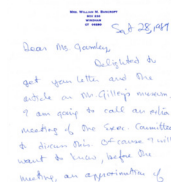 MRS. WILLIAM H. BANCROFT
BOX 255
WINDHAM
CT 06280
Sept 28, 1989
Dear Mr. Gormley,
Delighted to
get your letter and the
article on Mr. Gilley's museum.
I am going to call an extra
meeting of the Exec. Committee
to discuss this. Of course I will
want to know, before the
meeting, an approximation of